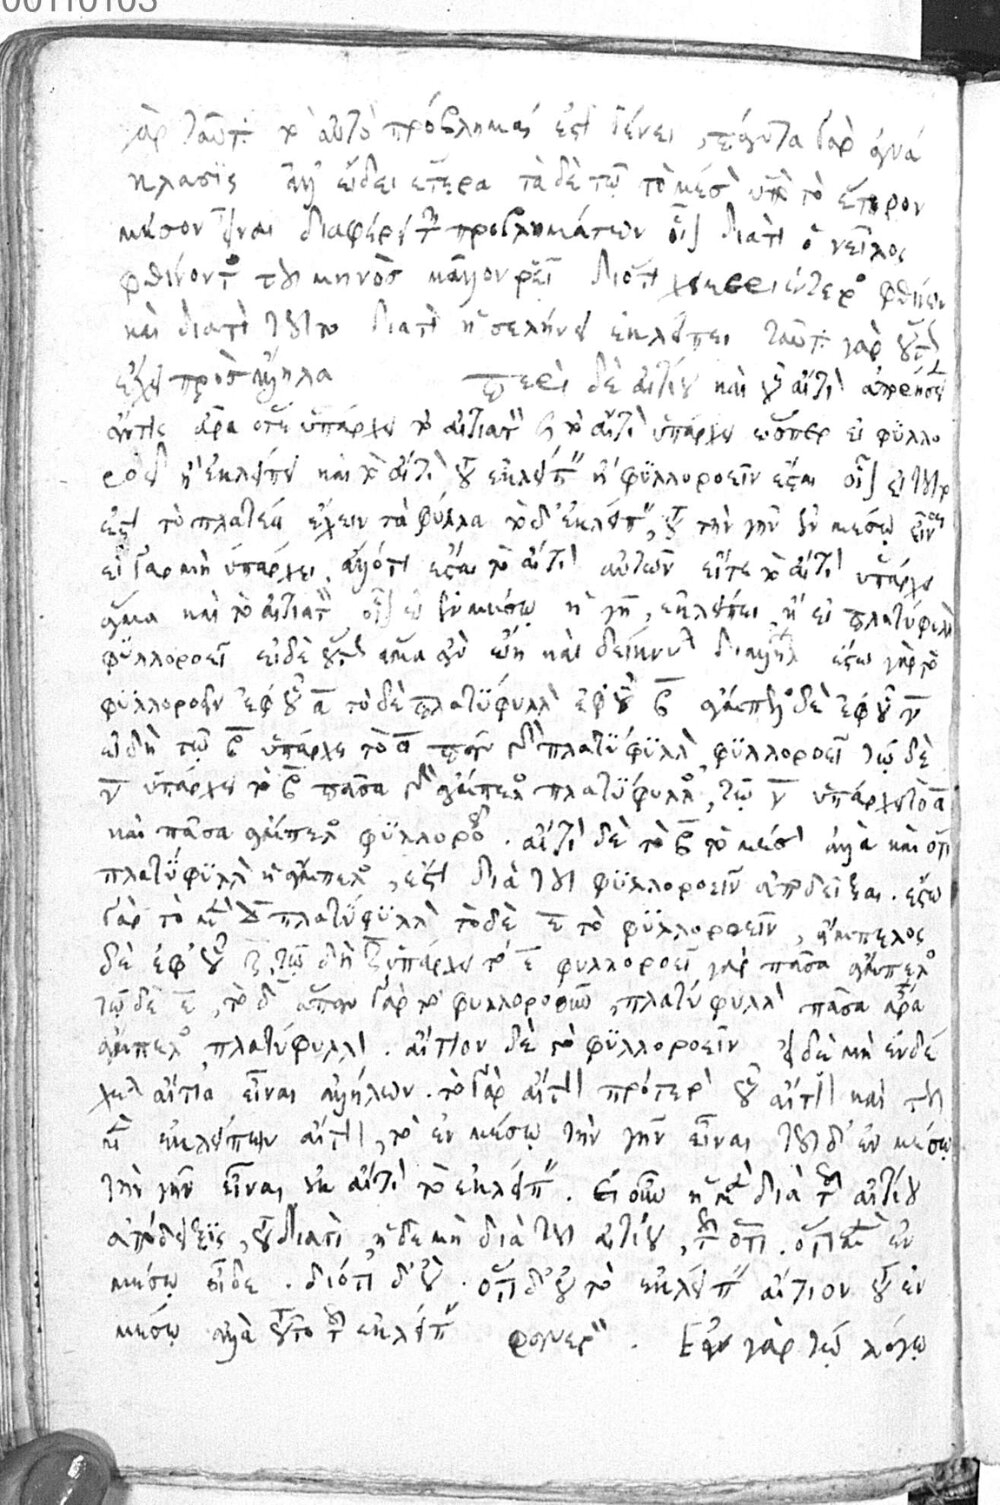 γὰρ ταῦτ κ αὐτὸ πρόβλημά ἐστι γένει, πάντα γὰρ ἀνά
κλασϊς ἀλλ εἴδει ἕτερα τὰ δὲ τῶ τὸ μέσον ὑπὸ τὸ ἕτερον
μέσον εἶναι διαφέρει τῶν προβλημάτων οἷον διατί ὁ νεῖλος
φθίνοντος του μηνὸσ μᾶλλον ρεῖ διότι χειμεριώτερος φθίνων
καὶ διατί τουτο διατὶ ἡ σελήνη ἐκλείπει ταῦτα γὰρ οὕτως
ἔχει πρὸσ ἄλληλα περὶ δὲ αἰτίου καὶ οὗ αἴτιον ἀπορήσειεν
ἄντις ἆρα ὅτε ὑπάρχει τὸ αἰτιατὸν καὶ τὸ αἴτιον ὑπάρχει ὥσπερ εἰ φυλλο
ροεῖ ἢ ἐκλείπει καὶ τὸ αἴτιον τοῦ ἐκλείπειν ἢ φϋλλοροεῖν ἔσται οἷον εἰ τουτο
ἐστι τὸ πλατέα ἔχειν τὰ φύλλα τοῦ δ' ἐκλείπειν, τὸ τὴν γῆν ἐν μέσω εἶναι
εἰ γὰρ μὴ ὑπάρχει, ἄλλό τι ἔσται τὸ αἴτιον αὐτῶν εἴτε τὸ αἴτιον ὑπάρχει
ἅμα καὶ τὸ αἰτιατὸν οἷον εἰ ἐν μέσω ἡ γῆ, ἐκλείπει, ἢ εἰ πλατύφυλλον
φϋλλοροεῖ εἰ δὲ οὕτως ἅμα ἂν εἴη καὶ δεικνύοιτο δι αλλήλων ἔστω γὰρ τὸ
φϋλλοροεῖν ἐφ' οὗ α τὸ δὲ πλατϋφυλλον ἐφ' οὗ β ἄμπελος δὲ ἐφ' οὗ γ
εἰ δὴ τῶ β ὑπάρχει τὸ α πᾶν γὰρ πλατϋφϋλλον φϋλλοροεῖ τῶ δὲ
γ ὑπάρχει τὸ β πᾶσα γὰρ ἄμπελος πλατϋφυλλος, τῶ γ ὑπάρχει τὸ α
καὶ πᾶσα ἄμπελος φϋλλοροεῖ. αἴτιον δὲ τὸ β τὸ μέσον ἀλλὰ καὶ ὅτι
πλατύφϋλλον ἡ ἄμπελος, ἔστι διὰ του φϋλλοροεῖν ἀποδεῖξαι. ἔστω
γὰρ τὸ μὲν δ πλατύφϋλλον τὸ δὲ ε τὸ φϋλλοροεῖν, ἄμπελος
δὲ ἐφ' οὗ ζ τῶ δὴ ζ ὑπάρχει τὸ ε φυλλοροεῖ γὰρ πᾶσα ἄμπελος
τῶ δὲ ε, τὸ δ ἅπαν γὰρ τὸ φυλλοροοῦν, πλατύφυλλον πᾶσα ἄρα
ἄμπελος πλατύφυλλον. αἴτιον δὲ τὸ φϋλλοροεῖν εἰ δὲ μὴ ἐνδέ
χεται αἴτια εἶναι ἀλλήλων. τὸ γὰρ αἴτιον πρότερον οὗ αἴτιον καὶ του
μὲν ἐκλείπειν αἴτιον, τὸ ἐν μέσω τὴν γῆν εἶναι του δ' ἐν μέσω
τὴν γῆν εἶναι οὐκ αἴτιον τὸ ἐκλείπειν. εἰ οὖν ἡ μὲν διὰ τοῦ αἰτίου
ἀπόδειξϊς, τοῦ διατί, ἡ δὲ μὴ διὰ του αἰτίου, τοῦ ὅτι. ὅτι μὲν ἐν
μέσω οἶδε. διότι δ' οὔ. ὅτι δ' οὐ τὸ ἐκλείπειν αἴτιον τοῦ ἐν
μέσω ἀλλὰ τοῦτο τοῦ ἐκλείπειν φανερὸν. Ἐν γὰρ τῶ λόγω